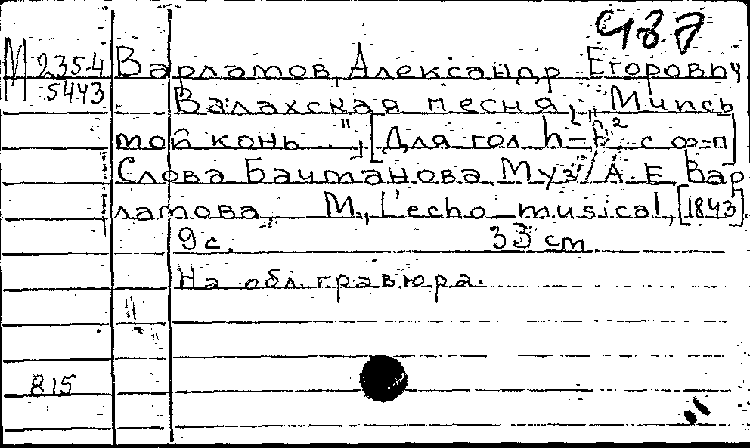 487
М 2354 Варламов, Александр Егорович
5443 Валахская песня, „Мчись
мой конь...", [Для гол. h-fis² с ф-п]
Слова Бачманова. Муз. А. Е. Вар
ламова. М., L'echo musical, [1843]
9 с. 33 cm.
На обл. гравюра.
815